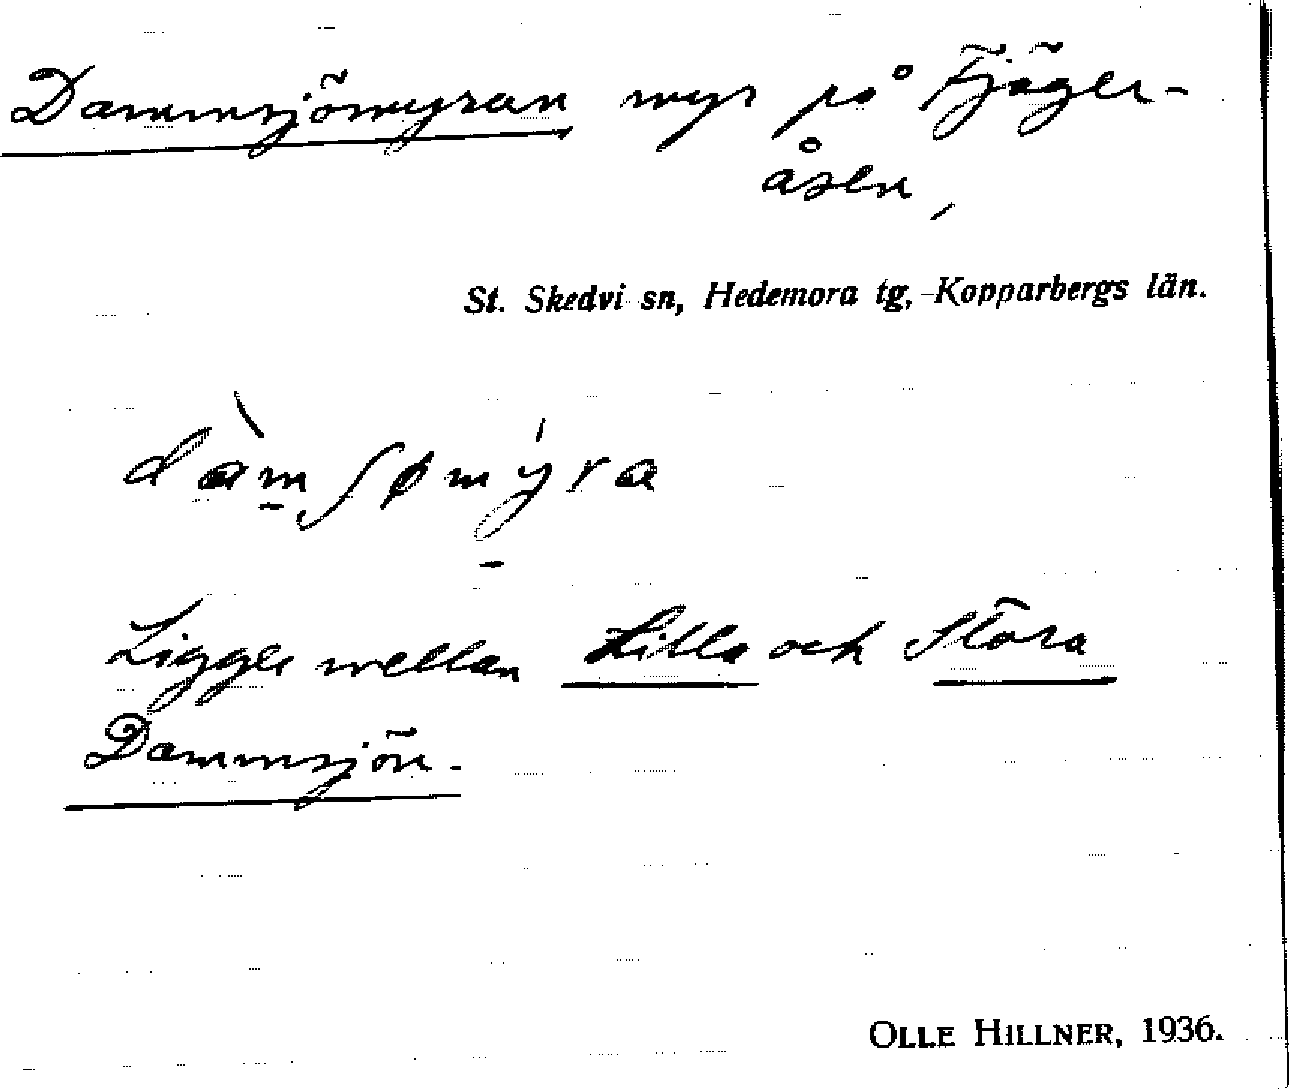 Dammsjömyran myr på Fjäger-
åsen,
St. Skedvi sn, Hedemora tg, Kopparbergs län.
dàm̠ʃømý̠ra
Ligger mellan Lilla och Stora
Dammsjön.
OLLE HILLNER, 1936.